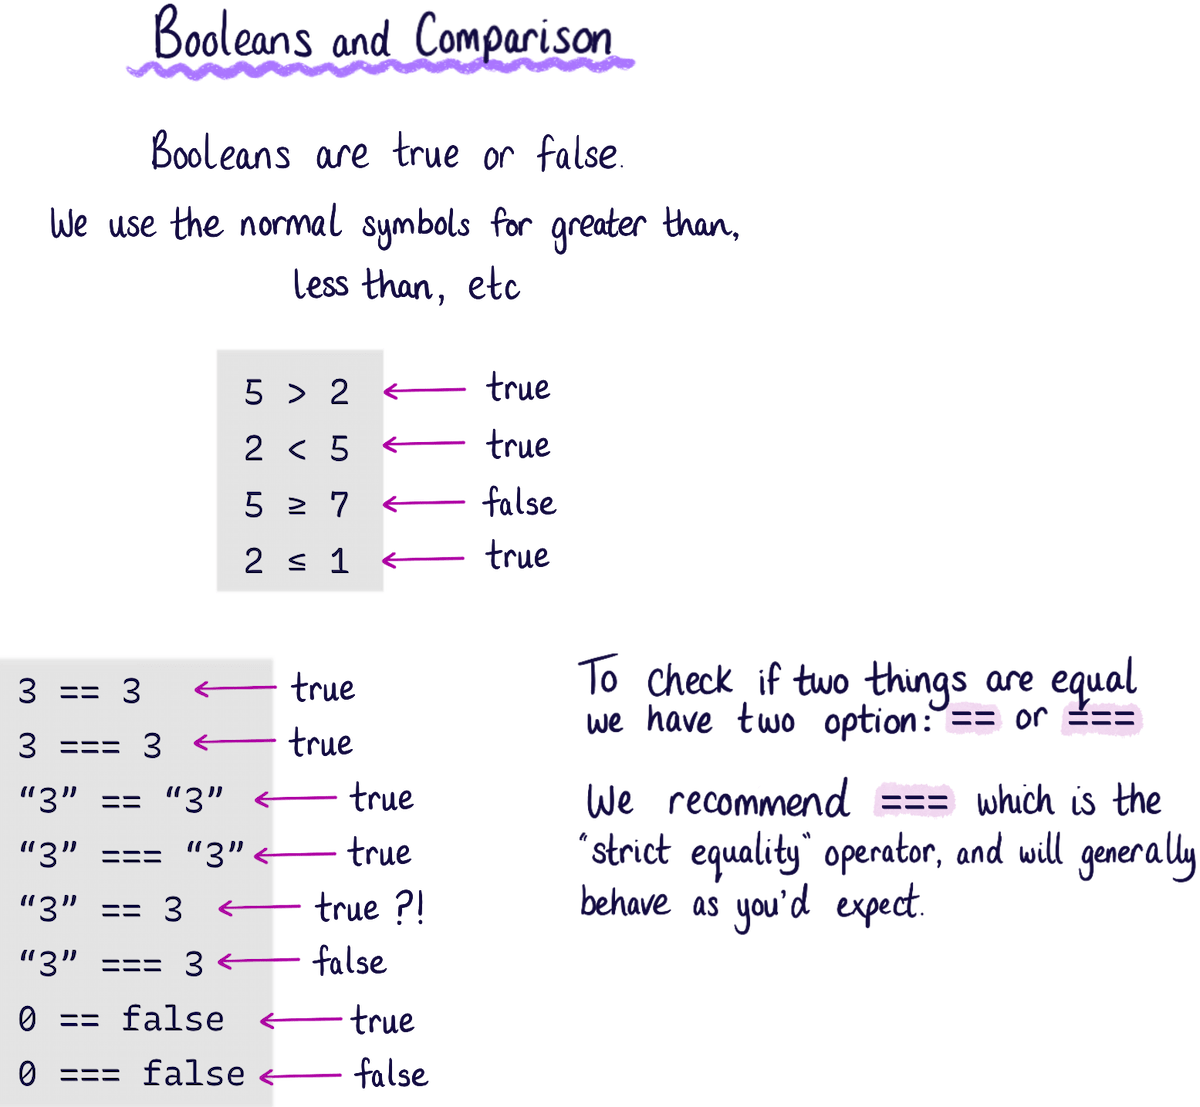 Booleans and Comparison
Booleans are true or false.
We use the normal symbols for greater than,
less than, etc
5 > 2 true
2 < 5 true
5 ≥ 7 false
2 ≤ 1 true
3 == 3 true
3 === 3 true
“3” == “3” true
“3” === “3” true
“3” == 3 true ?!
“3” === 3 false
0 == false true
0 === false false
To check if two things are equal
we have two option: == or ===
We recommend === which is the
"strict equality" operator, and will generally
behave as you'd expect.